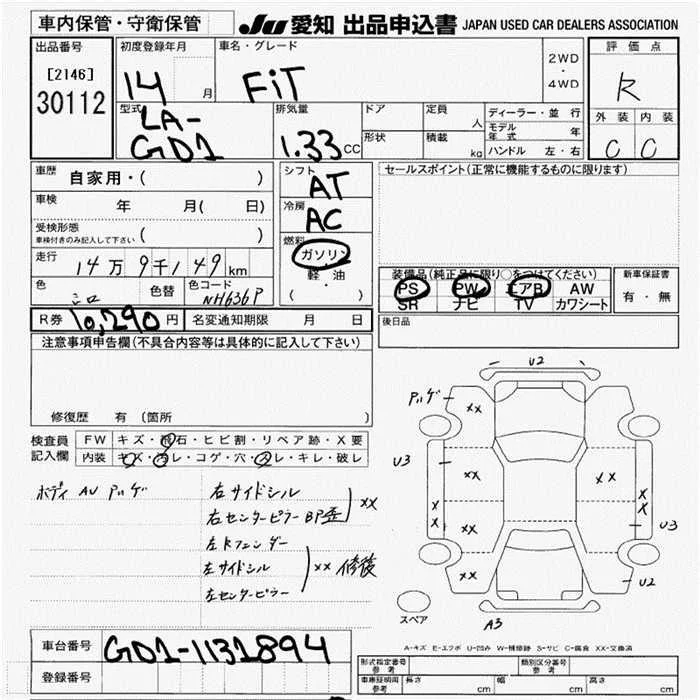 車内保管・守衛保管
JU 愛知 出品申込書 JAPAN USED CAR DEALERS ASSOCIATION
出品番号 初度登録年月 車名・グレード 2WD・4WD 評価点
[2146] 14 月 FiT R
30112
型式 排気量 ドア 定員 人 ディーラー・並行 外装 内装
LA-GD1 1.33 CC 形状 積載 kg モデル年式 年 C C
ハンドル 左・右
車歴 自家用・( ) シフト AT セールスポイント(正常に機能するものに限ります)
車検 年 月( 日) 冷房 AC
受検形態 車検付きのみ記入して下さい ( )
燃料 ガソリン 軽・油 ( )
走行 14万9千149km
色 シロ 色替 色コード NH636P
装備品(純正品に限り○をつけてください) 新車保証書
PS PW エアB AW 有・無
SR ナビ TV カワシート
R券 10,290円 名変通知期限 月 日 後日品
注意事項申告欄(不具合内容等は具体的に記入して下さい)
修復歴 有 (箇所
検査員記入欄 FW キズ・飛石・ヒビ割・リペア跡・X要
内装 キズ・汚レ・コゲ・穴・スレ・キレ・破レ
ボディ AU アルゲ
右サイドシル
右センターピラー BP歪 XX
左Rフェンダー
左サイドシル XX 修後
左センターピラー
U2
アルゲ XX
U3 XX XX X X
X X XX U3
XX U2
スペア A3
A-キズ E-エクボ U-凹み W-補修跡 S-サビ C-腐食 XX-交換済
車台番号 GD1-1131894
登録番号
形式指定番号 参考 類別区分番号 参考
車庫証明用 参考 長さ cm 幅 cm 高さ cm